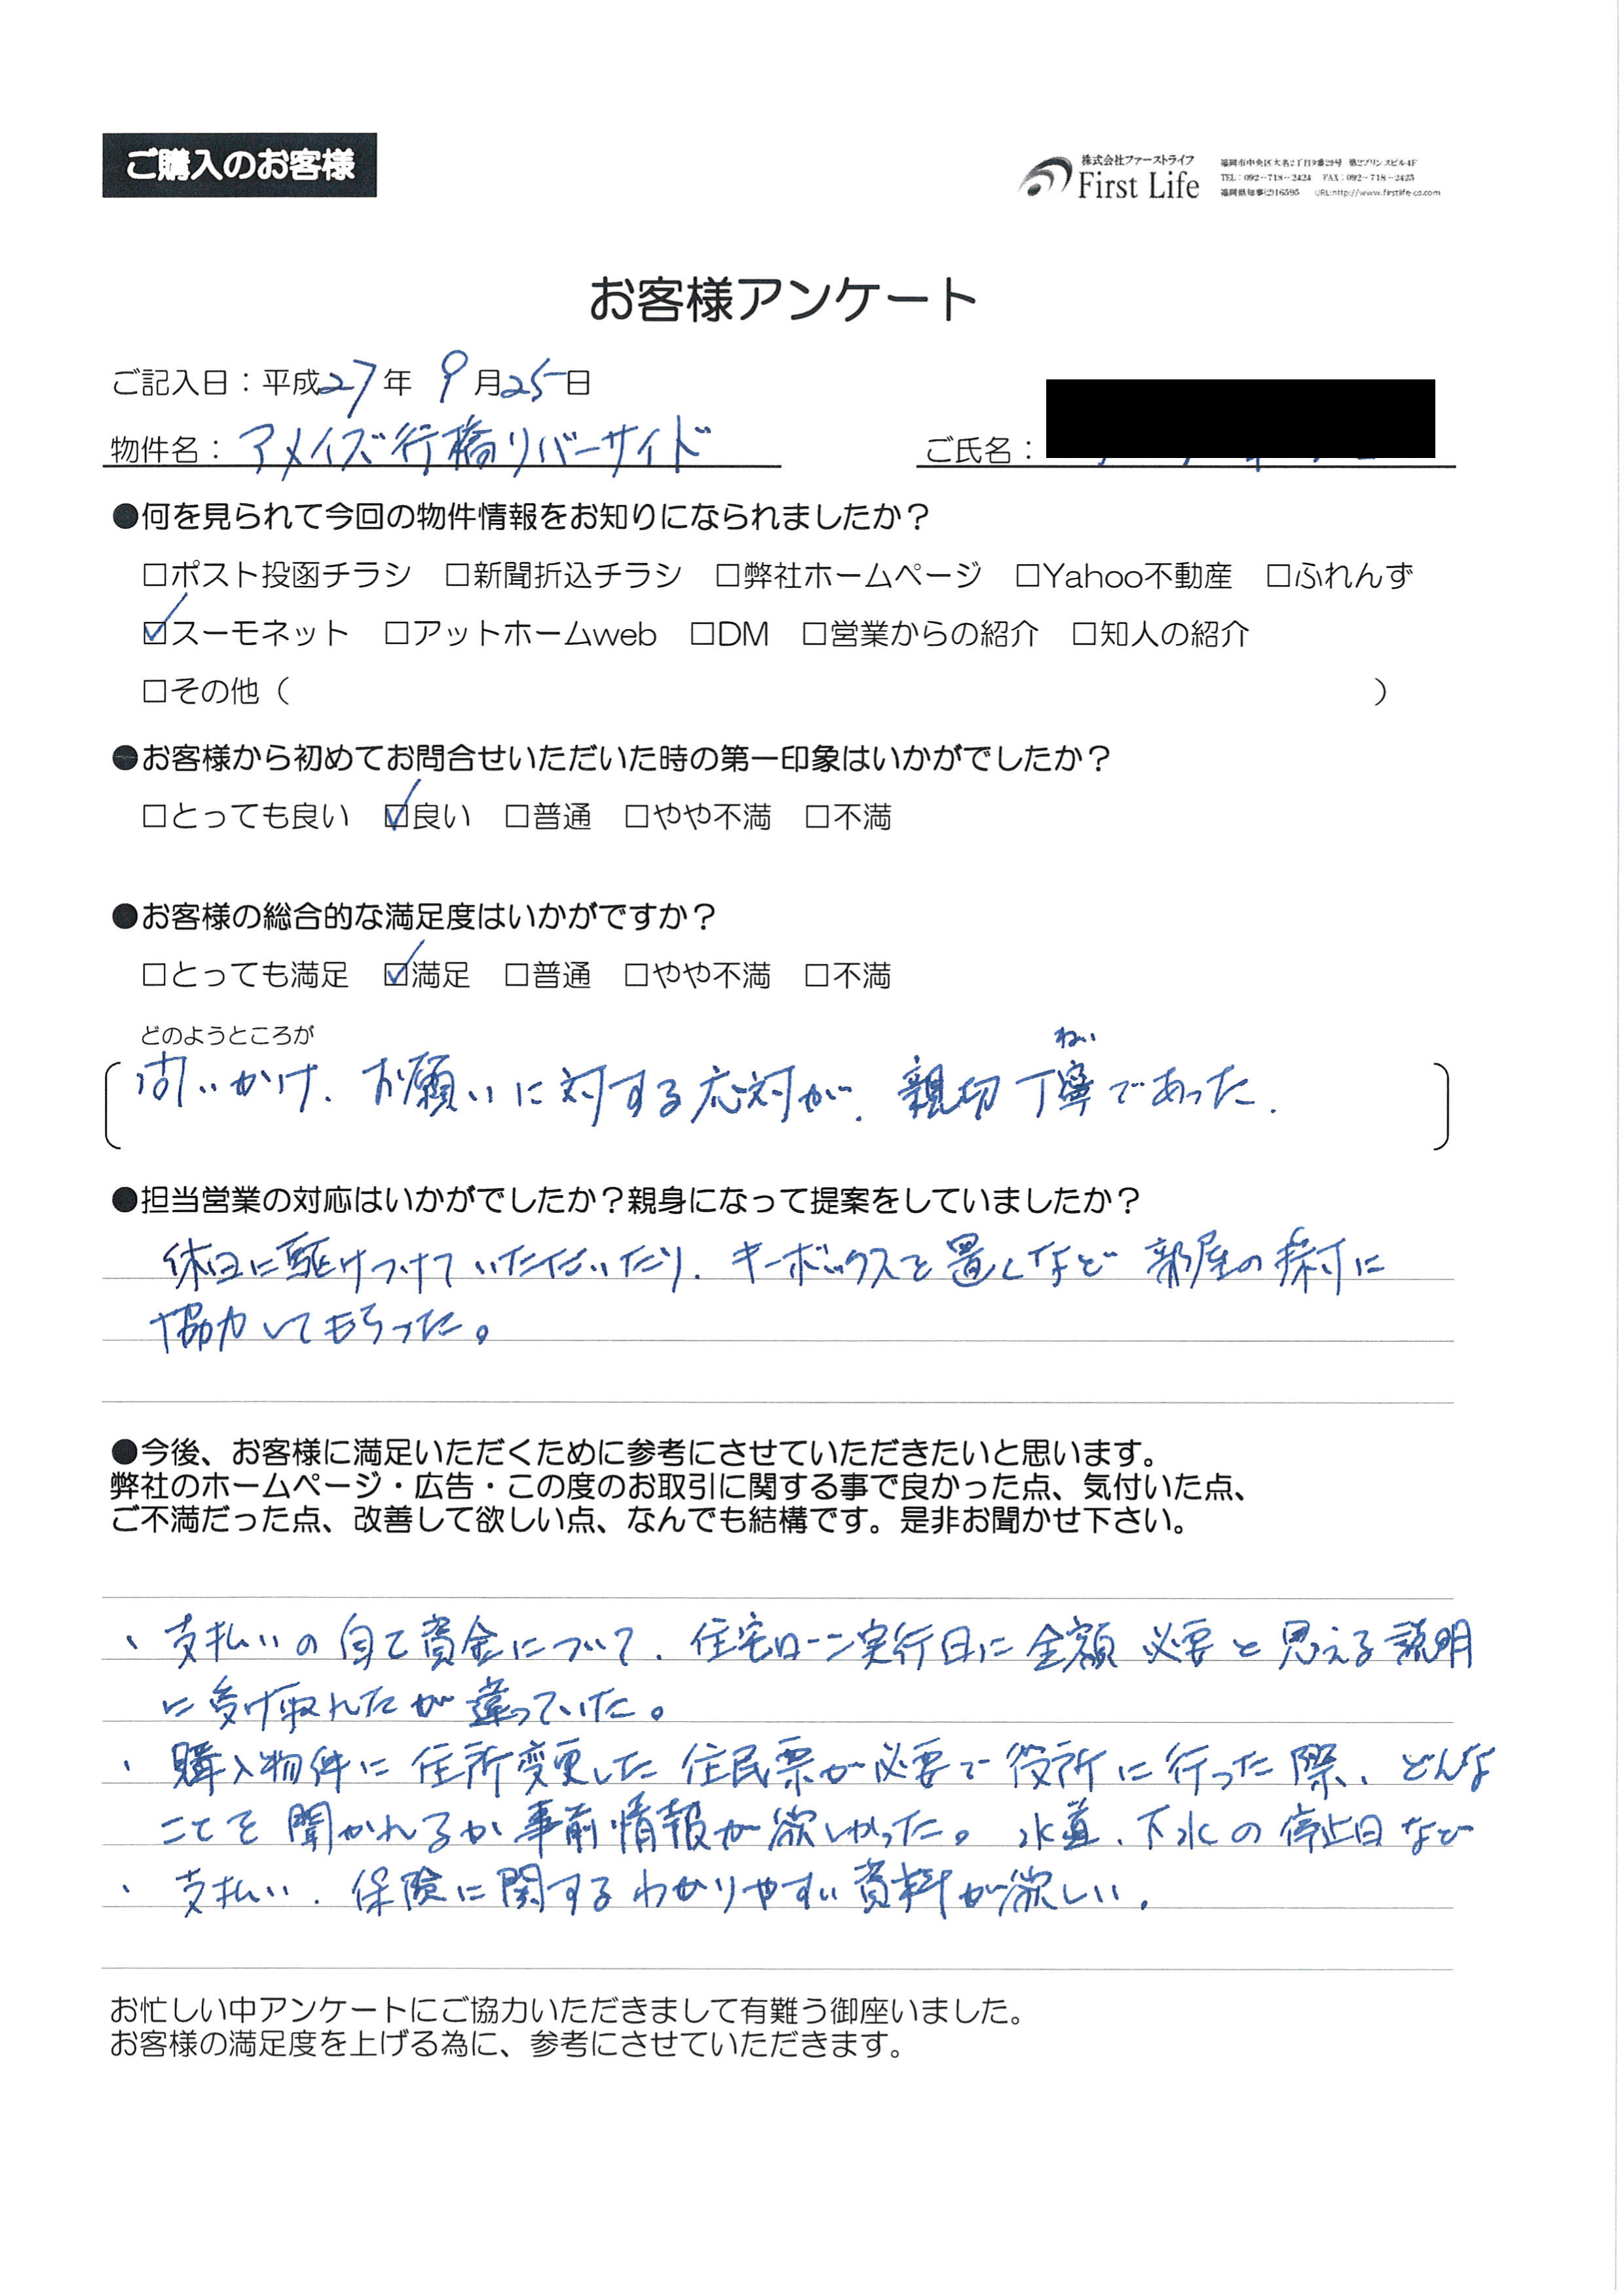 ご購入のお客様
株式会社ファーストライフ
First Life
福岡市中央区大名2丁目9番29号 第2プリンスビル4F
TEL：092-718-2424 FAX：092-718-2425
福岡県知事(2)16595 URL:http://www.firstlife-co.com
お客様アンケート
ご記入日：平成27年 9月25日
物件名：アメイズ行橋リバーサイド ご氏名：
●何を見られて今回の物件情報をお知りになられましたか？
□ポスト投函チラシ □新聞折込チラシ □弊社ホームページ □Yahoo不動産 □ふれんず
☑スーモネット □アットホームweb □DM □営業からの紹介 □知人の紹介
□その他（ ）
●お客様から初めてお問合せいただいた時の第一印象はいかがでしたか？
□とっても良い ☑良い □普通 □やや不満 □不満
●お客様の総合的な満足度はいかがですか？
□とっても満足 ☑満足 □普通 □やや不満 □不満
どのようところが
ねい
問いかけ、お願いに対する応対が、親切丁寧であった.
●担当営業の対応はいかがでしたか？親身になって提案をしていましたか？
休日に駆けつけていただいたり、キーボックスを置くなど部屋の採寸に
協力してもらった。
●今後、お客様に満足いただくために参考にさせていただきたいと思います。
弊社のホームページ・広告・この度のお取引に関する事で良かった点、気付いた点、
ご不満だった点、改善して欲しい点、なんでも結構です。是非お聞かせ下さい。
、支払いの自己資金について、住宅ローン実行日に全額必要と思える説明
に受け取れたが違っていた。
、購入物件に住所変更した住民票が必要で役所に行った際、どんな
ことを聞かれるか事前情報が欲しかった。水道、下水の停止日など
、支払い、保険に関するわかりやすい資料が欲しい.
お忙しい中アンケートにご協力いただきまして有難う御座いました。
お客様の満足度を上げる為に、参考にさせていただきます。